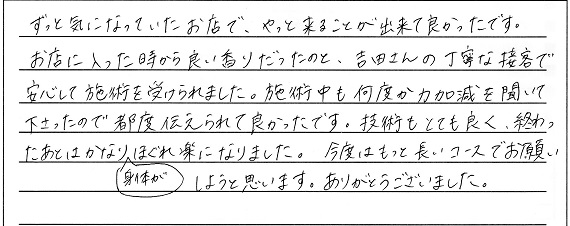 ずっと気になっていたお店で、やっと来ることが出来て良かったです。
お店に入った時から良い香りだったのと、吉田さんの丁寧な接客で
安心して施術を受けられました。施術中も何度か力加減を聞いて
下さったので都度伝えられて良かったです。技術もとても良く、終わっ
たあとはかなりほぐれ楽になりました。今度はもっと長いコースでお願い
身体が
しようと思います。ありがとうございました。